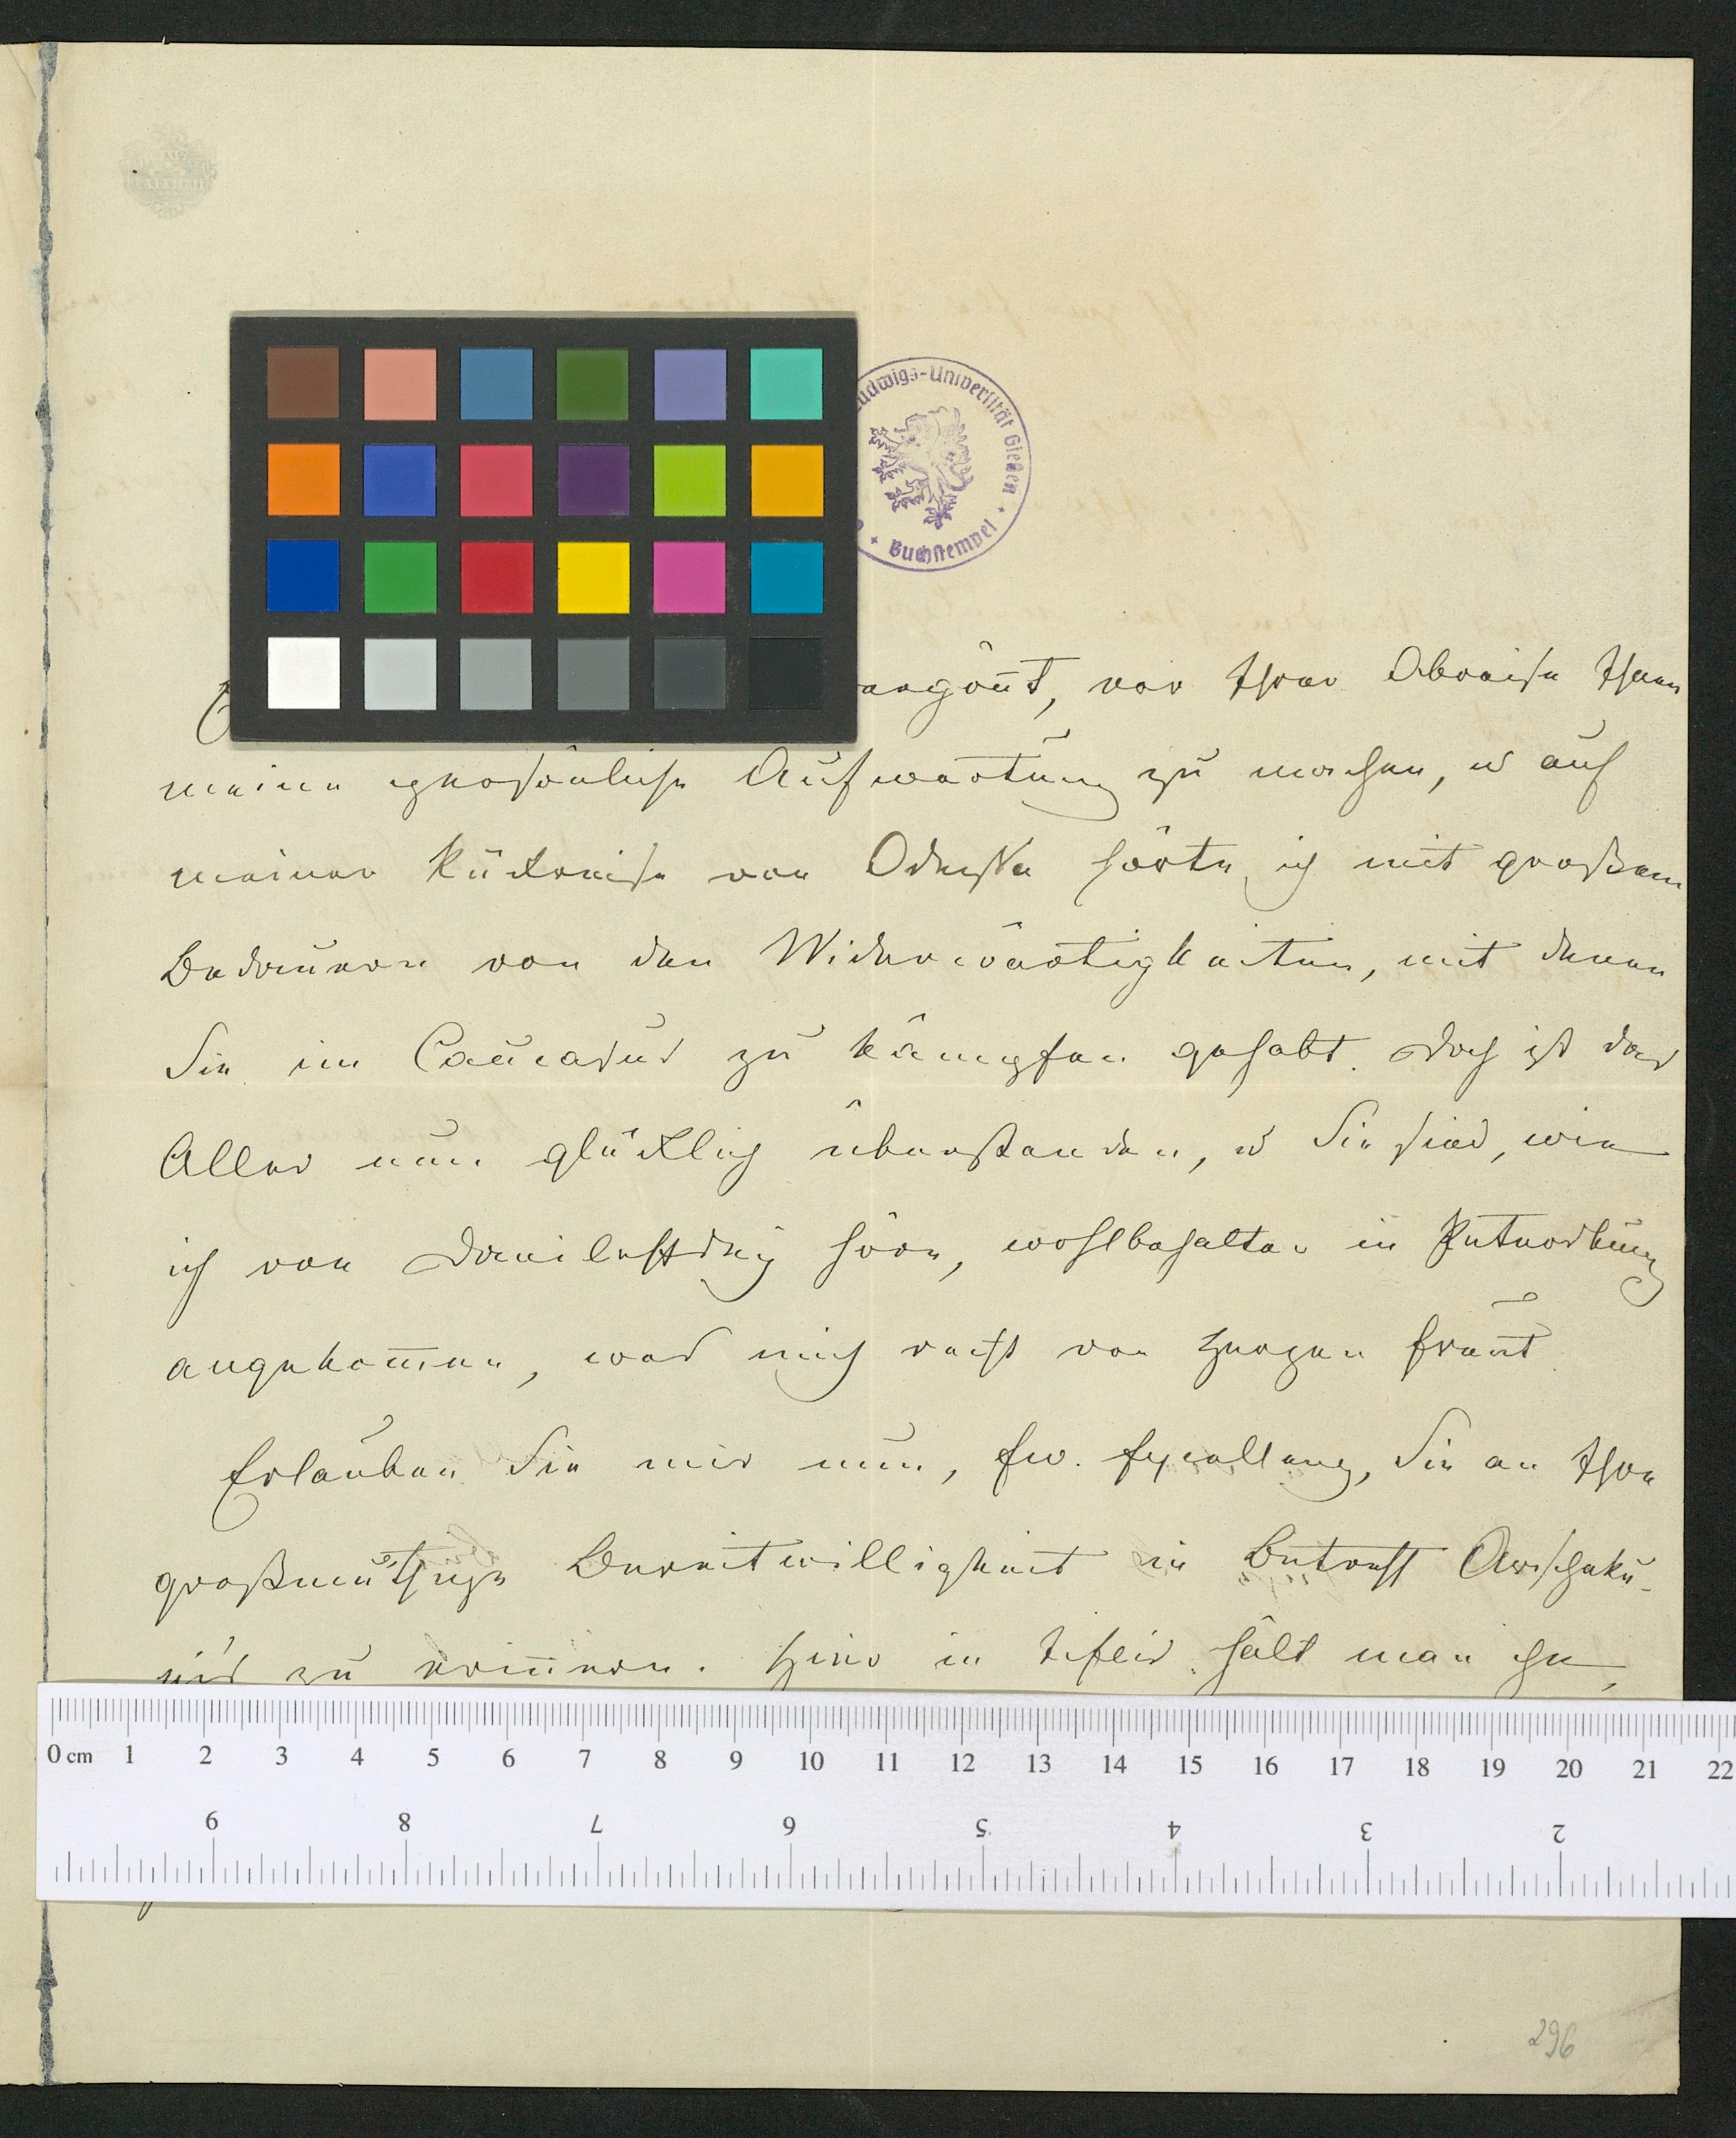 Ludwigs-Universität Gießen
Buchstempel
vergönnt, vor Ihrer Abreise Ihnen
meine persönliche Aufwartung zu machen, u auf
meiner Rückreise von Odessa hörte ich mit großem
Bedauern von den Widerwärtigkeiten, mit denen
Sie im Caucasus zu kämpfen gehabt. Doch ist das
Alles nun glücklich überstanden, u Sie sind, wie
ich von höre, wohlbehalten in Petersburg
angekommen, was mich recht von Herzen freut.
Erlauben Sie mir nun, Ew. Excellenz, Sie an Ihre
großmüthige Bereitwilligkeit in Betreff Arschaku-
ni's zu erinnern. Hier in Tiflis hält man ihn,
0 cm 1 2 3 4 5 6 7 8 9 10 11 12 13 14 15 16 17 18 19 20 21 22
9 8 7 6 5 4 3 2
296